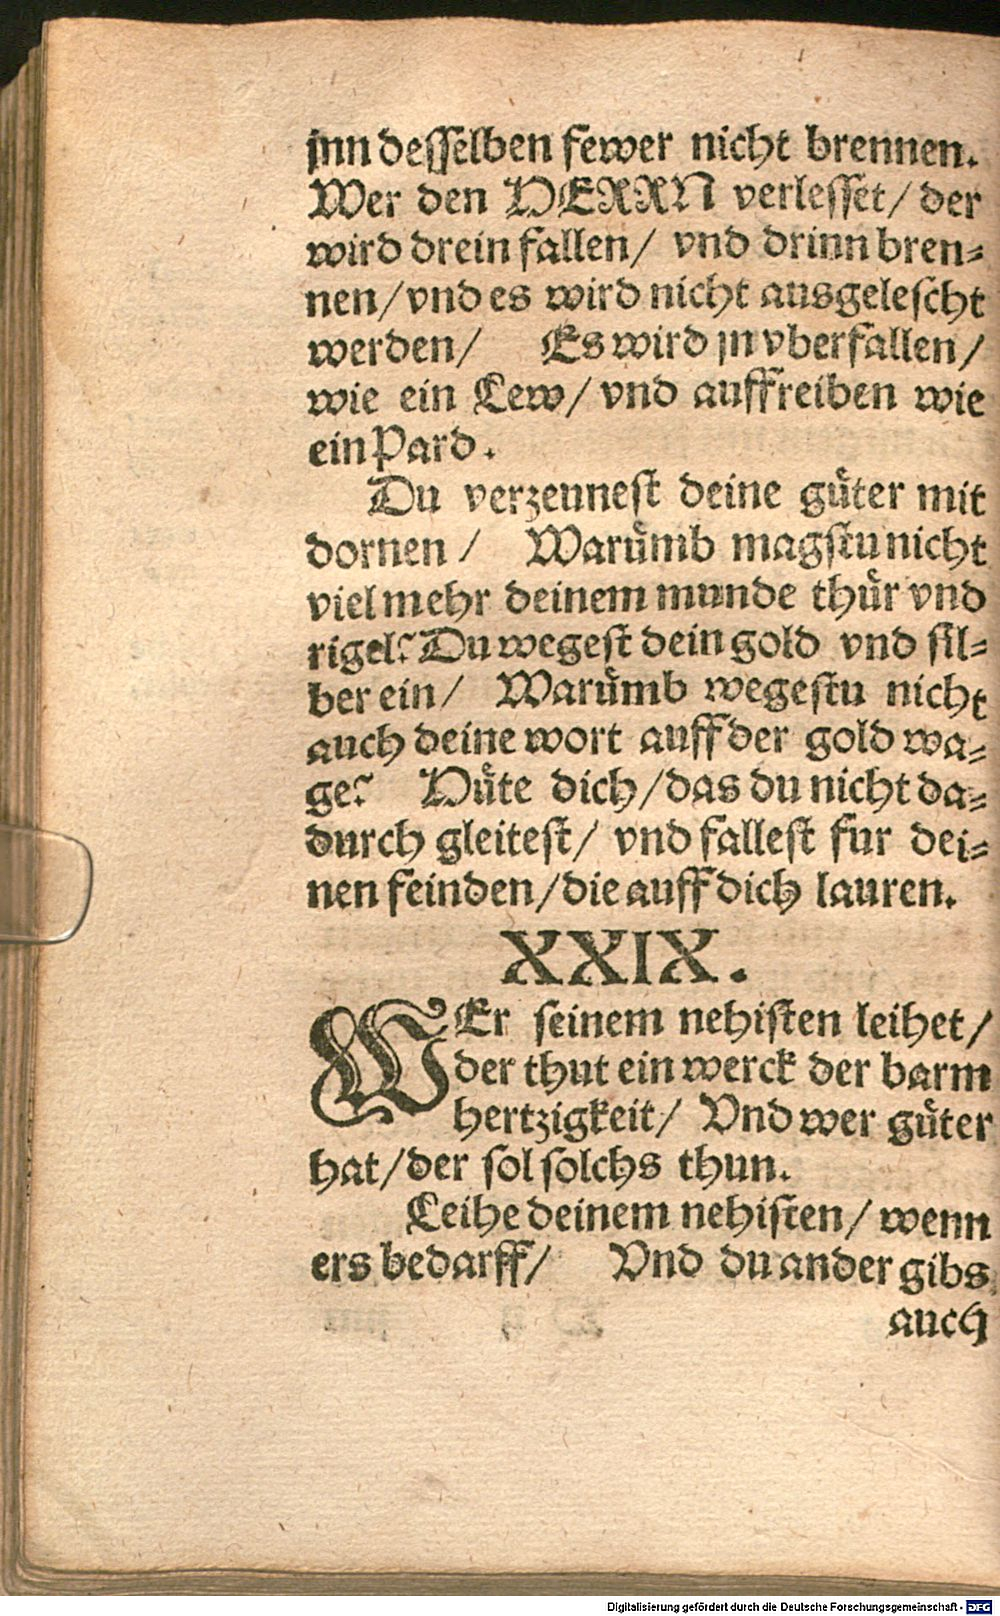 jnn desselben fewer nicht brennen.
Wer den HERRN verlesset/ der
wird drein fallen/ vnd drinn bren=
nen/vnd es wird nicht ausgelescht
werden/ Es wird jn vberfallen/
wie ein Lew/ vnd auffreiben wie
ein Pard.
Du verzeunest deine güter mit
dornen / Warümb magstu nicht
viel mehr deinem munde thür vnd
rigel? Du wegest dein gold vnd sil=
ber ein/ Warümb wegestu nicht
auch deine wort auff der gold wa=
ge? Hüte dich/das du nicht da=
durch gleitest/ vnd fallest fur dei=
nen feinden/die auff dich lauren.
XXIX.
WEr seinem nehisten leihet/
der thut ein werck der barm
hertzigkeit/ Vnd wer güter
hat/der sol solchs thun.
Leihe deinem nehisten/ wenn
ers bedarff/ Vnd du ander gibs
auch
Digitalisierung gefördert durch die Deutsche Forschungsgemeinschaft - DFG